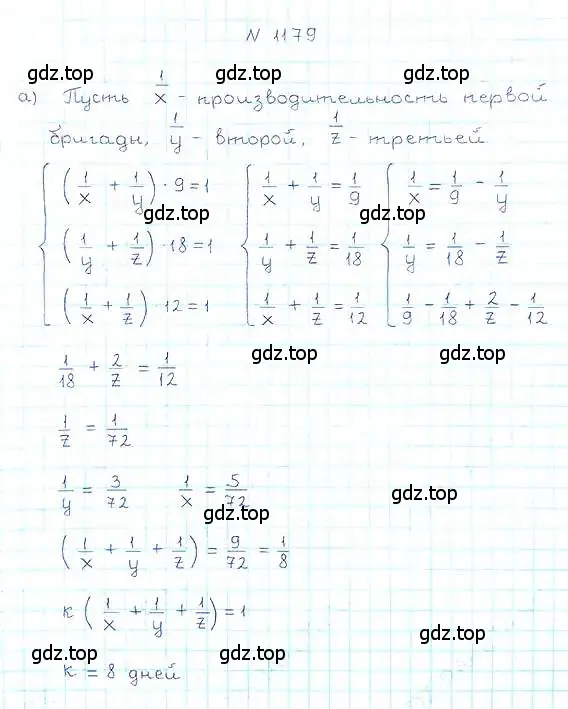 N 1179
gdz.top gdz.top gdz.top
а) Пусть 1/x - производительность первой
бригады, 1/y - второй, 1/z - третьей
{ (1/x + 1/y) · 9 = 1 { 1/x + 1/y = 1/9 { 1/x = 1/9 - 1/y
gdz.top gdz.top
(1/y + 1/z) · 18 = 1 1/y + 1/z = 1/18 1/y = 1/18 - 1/z
(1/x + 1/z) · 12 = 1 1/x + 1/z = 1/12 1/9 - 1/18 + 2/z - 1/12
gdz.top gdz.top
1/18 + 2/z = 1/12
1/z = 1/72
1/y = 3/72 1/x = 5/72
gdz.top gdz.top
(1/x + 1/y + 1/z) = 9/72 = 1/8
к (1/x + 1/y + 1/z) = 1
gdz.top gdz.top gdz.top
к = 8 дней